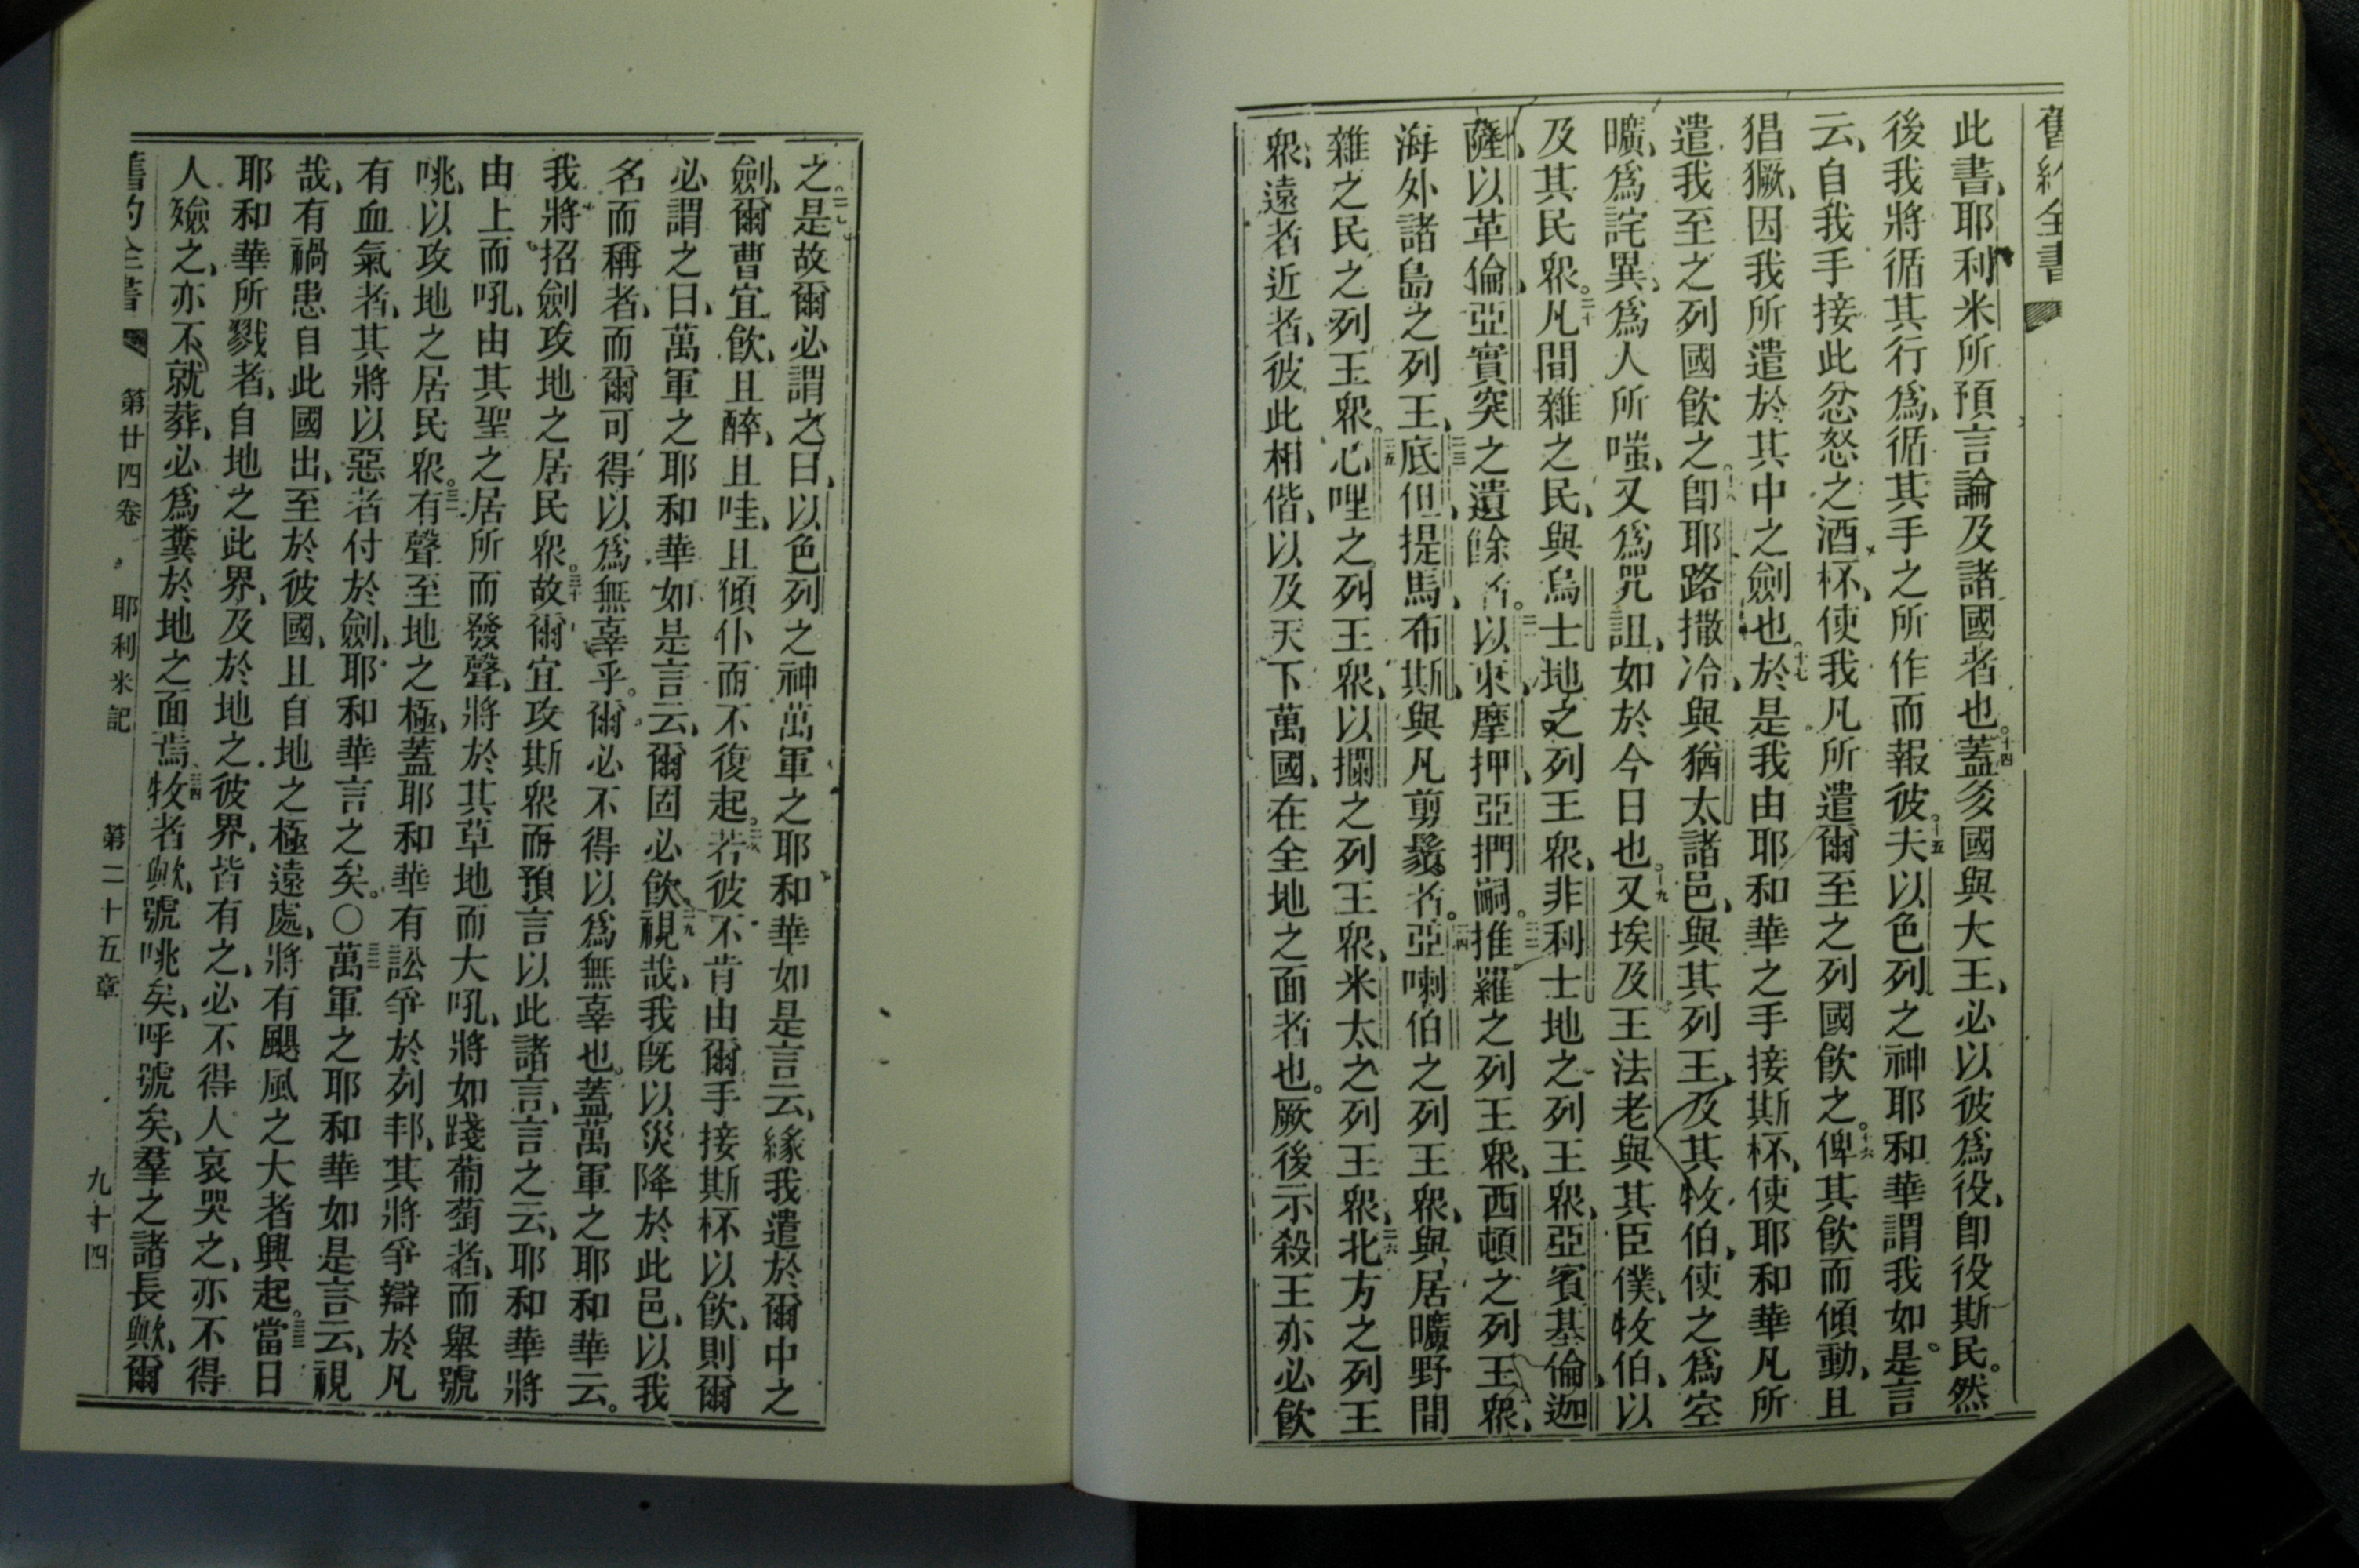 舊約全書
此書、耶利米所預言論及諸國者也。十四蓋多國與大王、必以彼爲役、卽役斯民。然
後我將循其行爲、循其手之所作而報彼。十五夫以色列之神耶和華謂我如是。言
云、自我手接此忿怒之酒杯、使我凡所遣爾至之列國飲之。十六俾其飲而傾動、且
猖獗、因我所遣於其中之劍也。十七於是我由耶和華之手接斯杯、使耶和華凡所
遣我至之列國飲之。十八卽耶路撒冷、與猶太諸邑、與其列王、及其牧伯、使之爲空
曠、爲詫異、爲人所嗤、又爲咒詛、如於今日也。十九又埃及王法老與其臣僕、牧伯、以
及其民衆。二十凡間雜之民、與烏士地之列王衆、非利士地之列王衆、亞實基倫、迦
薩、以革倫、亞實突之遺餘者。二一以東、摩押、亞捫嗣。二二推羅之列王衆、西頓之列王衆、
海外諸島之列王、二三底但、提馬、布斯、與凡剪鬚者。二四亞喇伯之列王衆、與居曠野間
雜之民之列王衆。二五心哩之列王衆、以攔之列王衆、米太之列王衆、二六北方之列王
衆、遠者近者、彼此相偕、以及天下萬國、在全地之面者也。厥後示殺王亦必飲
之。二七是故爾必謂之曰、以色列之神萬軍之耶和華如是言云、緣我遣於爾中之
劍、爾曹宜飲、且醉、且哇、且傾仆而不復起。二八若彼不肯由爾手接斯杯以飲、則爾
必謂之曰、萬軍之耶和華如是言云、爾固必飲。二九視哉、我既以災降於此邑、以我
名而稱者、而爾可得以爲無辜乎。爾必不得以爲無辜也。蓋萬軍之耶和華云。
我將招劍攻地之居民衆。三十故爾宜攻斯衆而預言以此諸言、言之云、耶和華將
由上而吼、由其聖之居所而發聲、將於其草地而大吼、將如踐葡萄者、而舉號
咷、以攻地之居民衆。三一有聲至地之極、蓋耶和華有訟爭於列邦、其將爭辯於凡
有血氣者、其將以惡者付於劍、耶和華言之矣。○三二萬軍之耶和華如是言云、視
哉、有禍患自此國出、至於彼國、且自地之極遠處、將有颶風之大者興起。三三當日
耶和華所戮者、自地之此界、及於地之彼界、皆有之、必不得人哀哭之、亦不得
人殮之、亦不就葬、必爲糞於地之面焉。三四牧者歟、號咷矣、呼號矣、羣之諸長歟、爾
第廿四卷 耶利米記 第二十五章 九十四